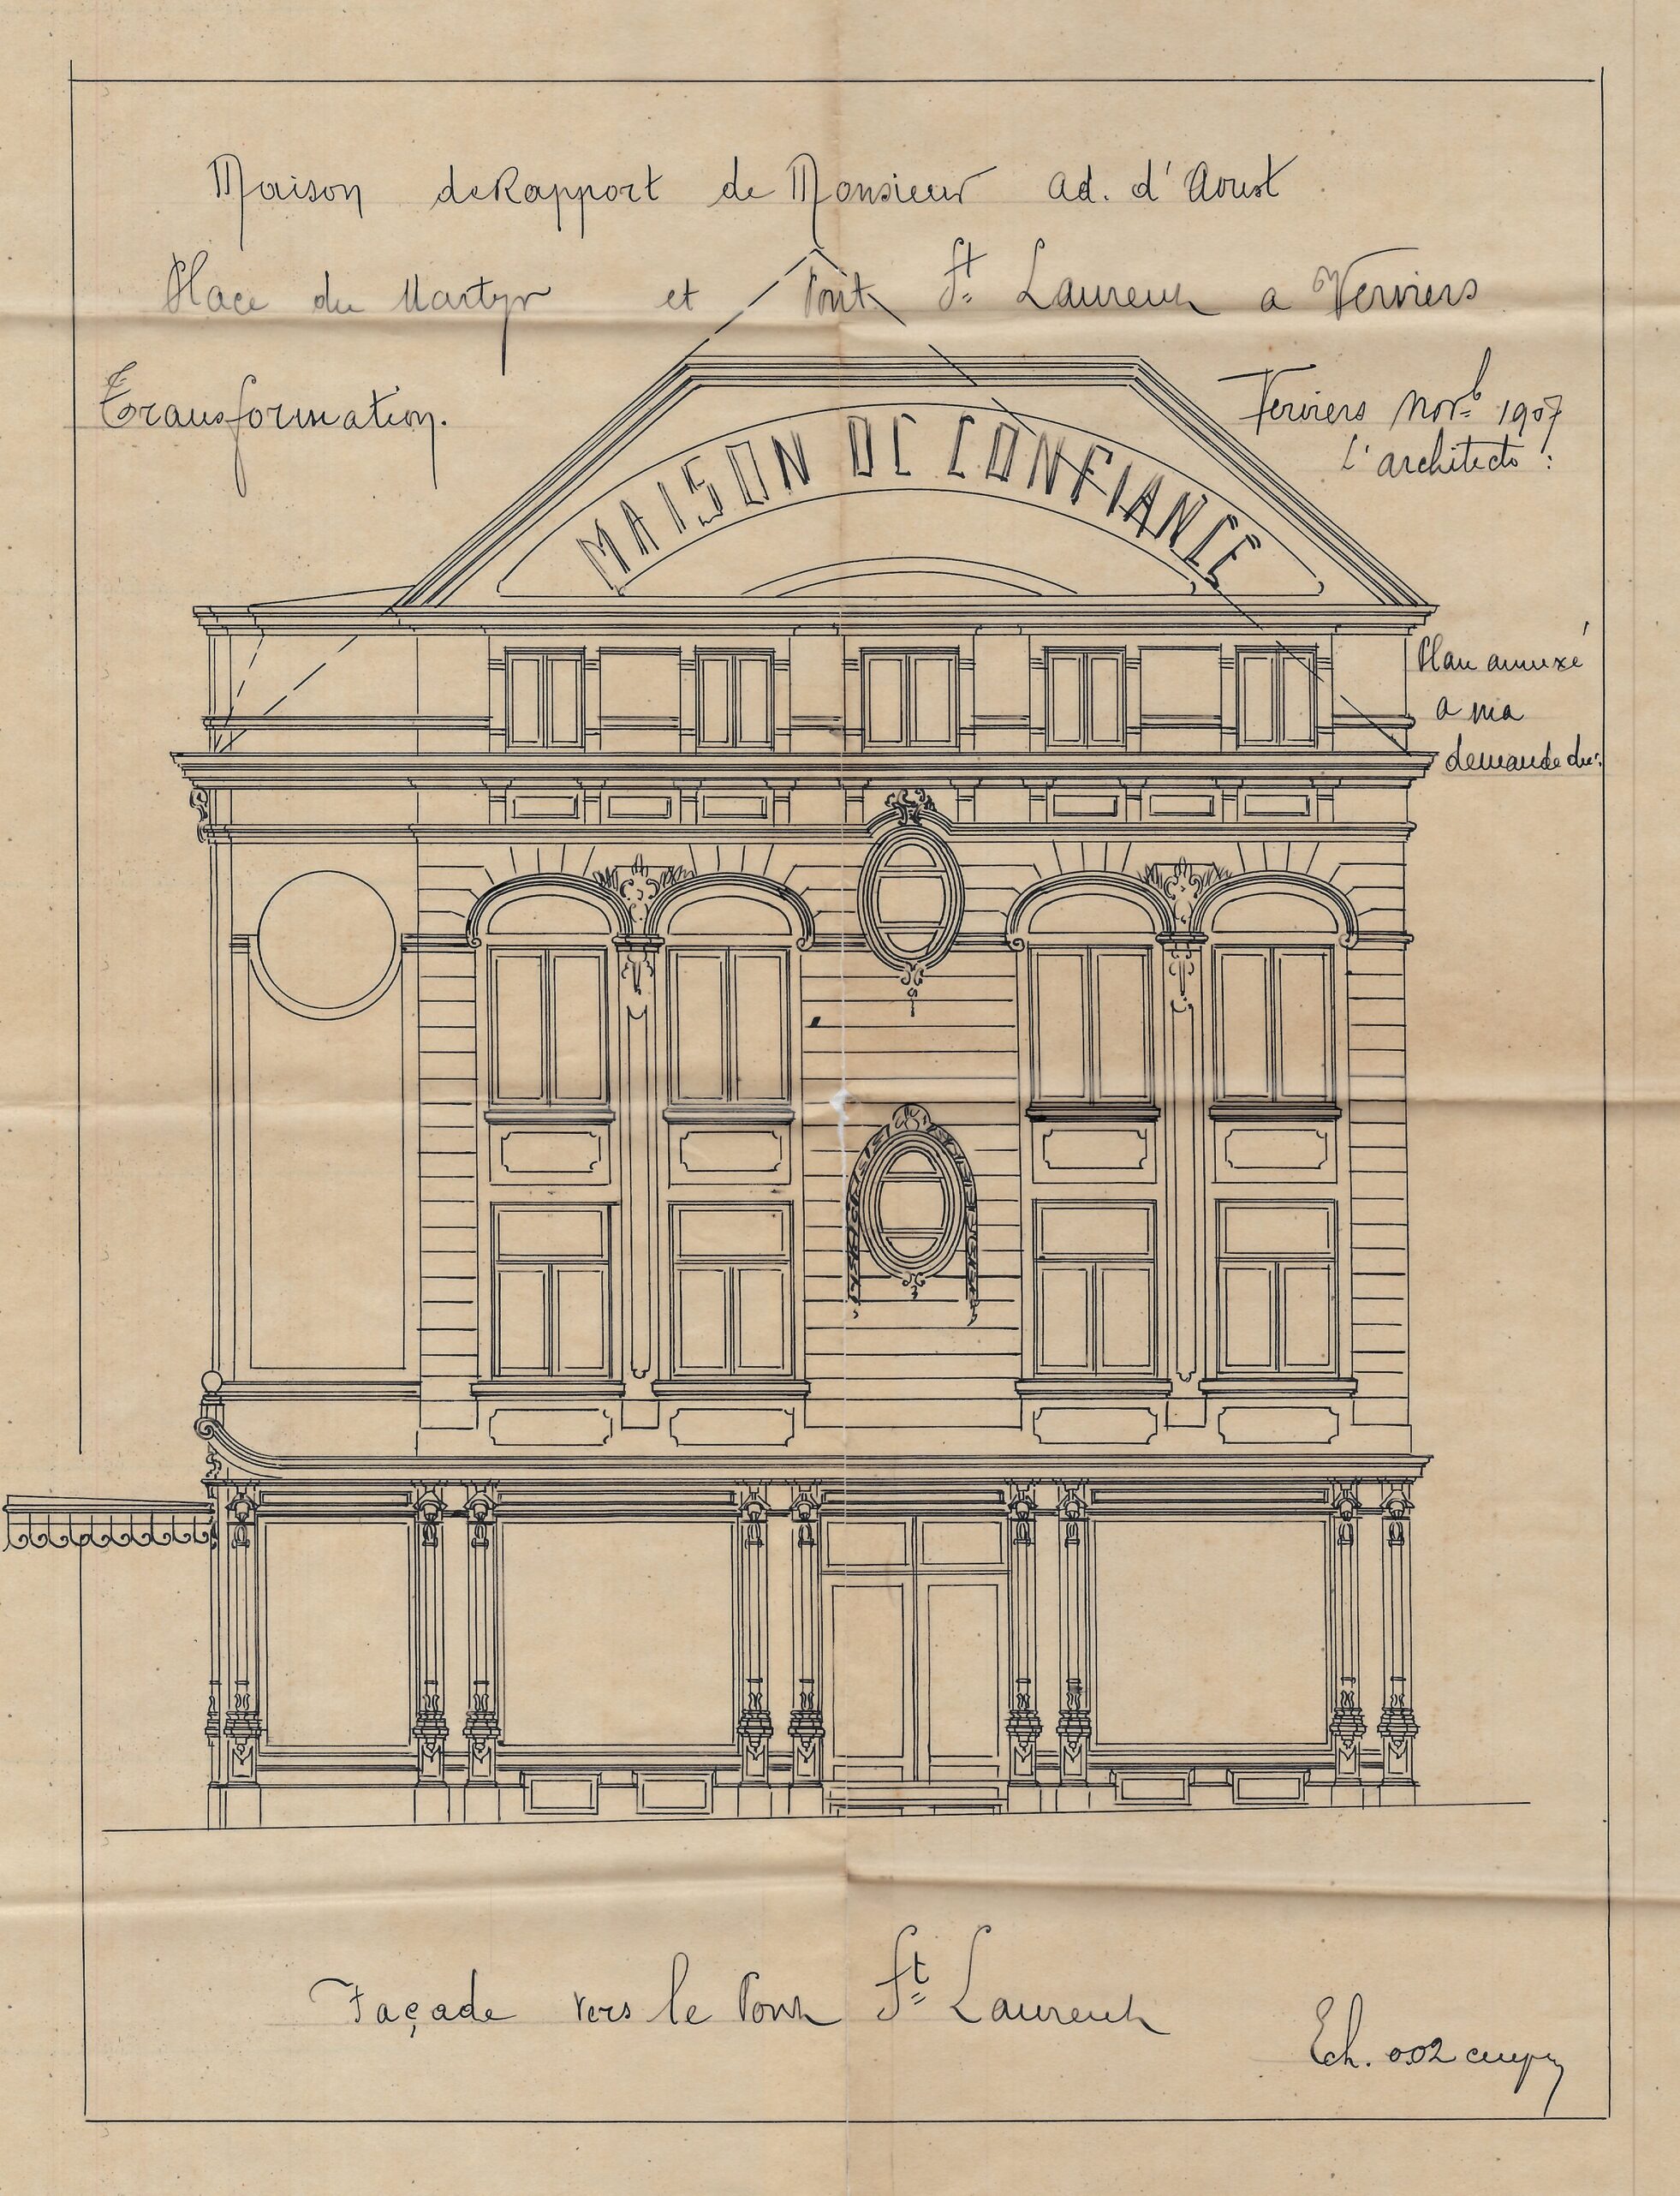 Maison de Rapport de Monsieur ad. d'Aoust
Place du Martyr et Pont St Laurent a Verviers
Transformation.
Verviers Novb 1907
L'architecte :
MAISON DE CONFIANCE
Plan annexé
a ma
demande du:
Façade vers le Pont St Laurent
Ech. 0.02